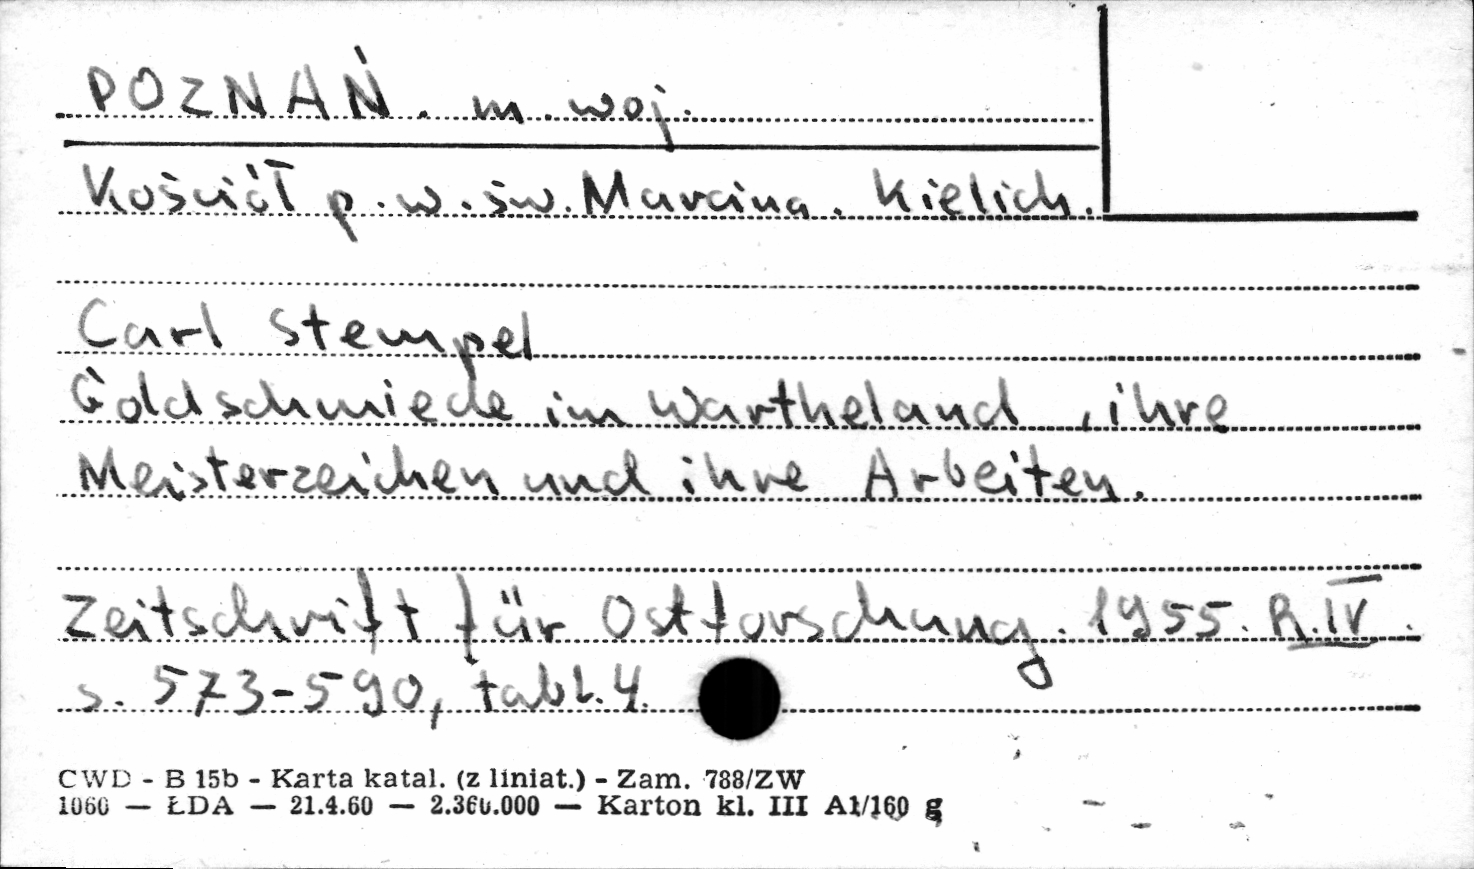 POZNAŃ. m. woj.
Kościół p.w. św. Marcina. Kielich.
Carl Stempel
Goldschmiede im Wartheland, ihre
Meisterzeichen und ihre Arbeiten.
Zeitschrift für Ostforschung. 1955. R.IV.
s. 573-590, tabl. 4.
CWD - B 15b - Karta katal. (z liniat.) - Zam. 788/ZW
1060 — ŁDA — 21.4.60 — 2.360.000 — Karton kl. III A1/160 g